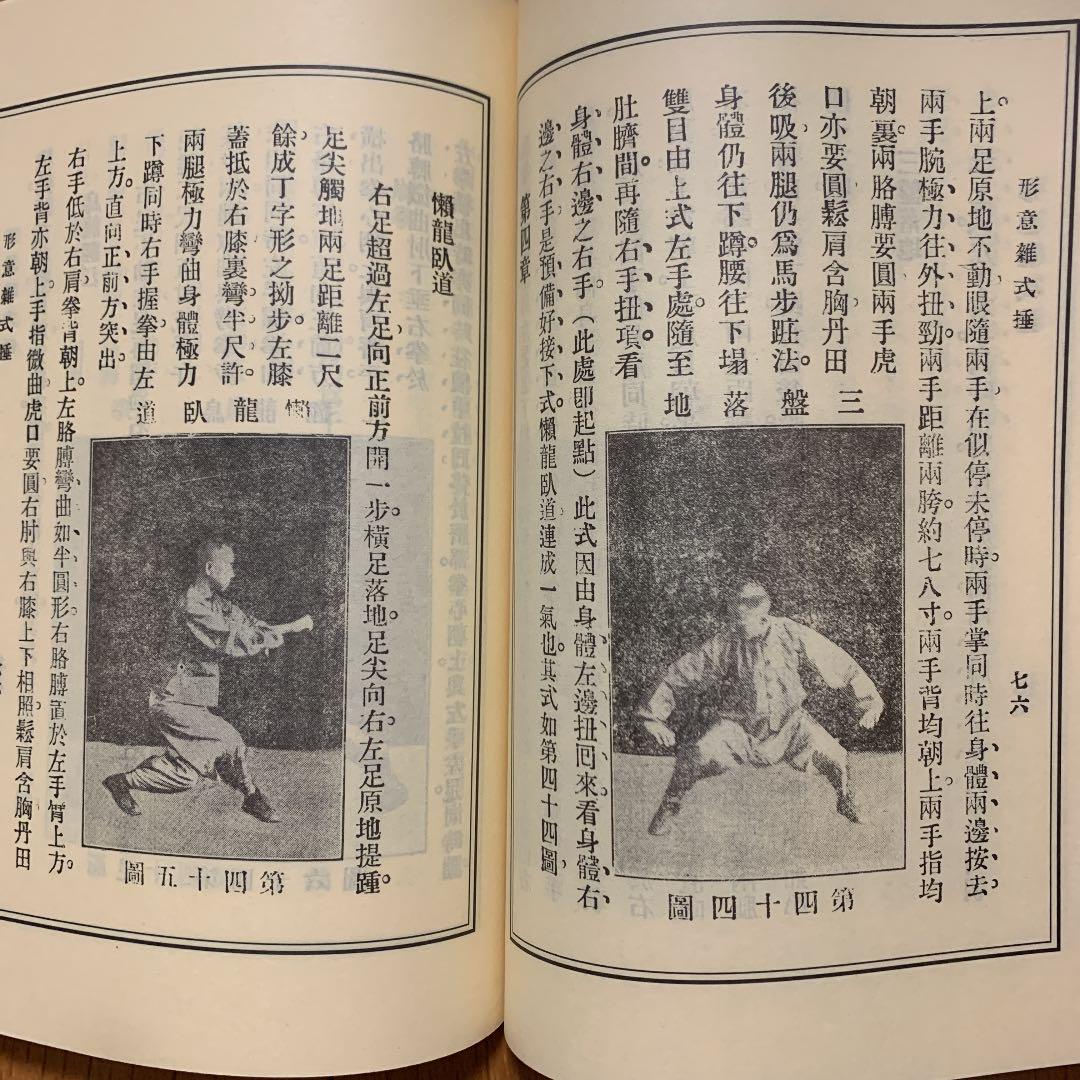 形意雜式捶
七六
上。兩足原地不動。眼隨兩手。在似停未停時。兩手掌同時往身體兩邊按去。
兩手腕極力往外扭勁。兩手距離兩胯。約七八寸。兩手背均朝上。兩手指均
朝裏。兩胳膊要圓。兩手虎
口亦要圓。鬆肩含胸。丹田
後吸。兩腿仍爲馬步跩法。
身體仍往下蹲。腰往下塌。
雙目由上式左手處。隨至
肚臍間。再隨右手扭項。看
三盤落地
身體右邊之右手。(此處即起點)此式因由身體左邊扭回來。看身體右
邊之右手。是預備好接下式懶龍臥道。連成一氣也。其式如第四十四圖。
第四十四圖
第四章
懶龍臥道
右足超過左足。向正前方開一步。橫足落地。足尖向右。左足原地提踵。
足尖觸地。兩足距離二尺
餘。成丁字形之拗步。左膝
蓋抵於右膝裏彎半尺許。
兩腿極力彎曲。身體極力
下蹲。同時右手握拳。由左
上方。直向正前方突出。
懶龍臥道
右手低於右肩。拳背朝上。左胳膊彎曲如半圓形。右胳膊置於左手臂上方。
左手背亦朝上。手指微曲。虎口要圓。右肘與右膝上下相照。鬆肩含胸。丹田
第四十五圖
形意雜式捶